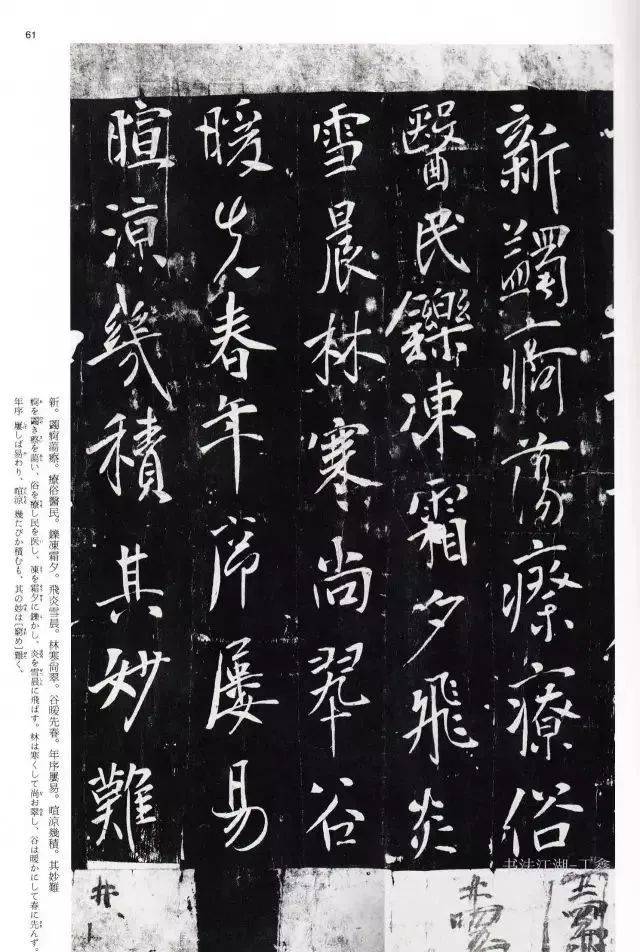 61
新蠲痾蕩瘵療俗
醫民鑠凍霜夕飛炎
雪晨林寒尚翠谷
暖先春年序屢易
暄涼幾積其妙難
新。蠲痾蕩瘵。療俗醫民。鑠凍霜夕。飛炎雪晨。林寒尚翠。谷暖先春。年序屢易。暄涼幾積。其妙難
痾を蠲き瘵を蕩い、俗を療し民を医し、凍を霜夕に鑠かし、炎を雪晨に飛ばす。林は寒くして尚お翠し、谷は暖かにして春に先んず。
年序 屢しば易わり、暄涼 幾たびか積むも、其の妙は〔窮め〕難く、
书法江湖